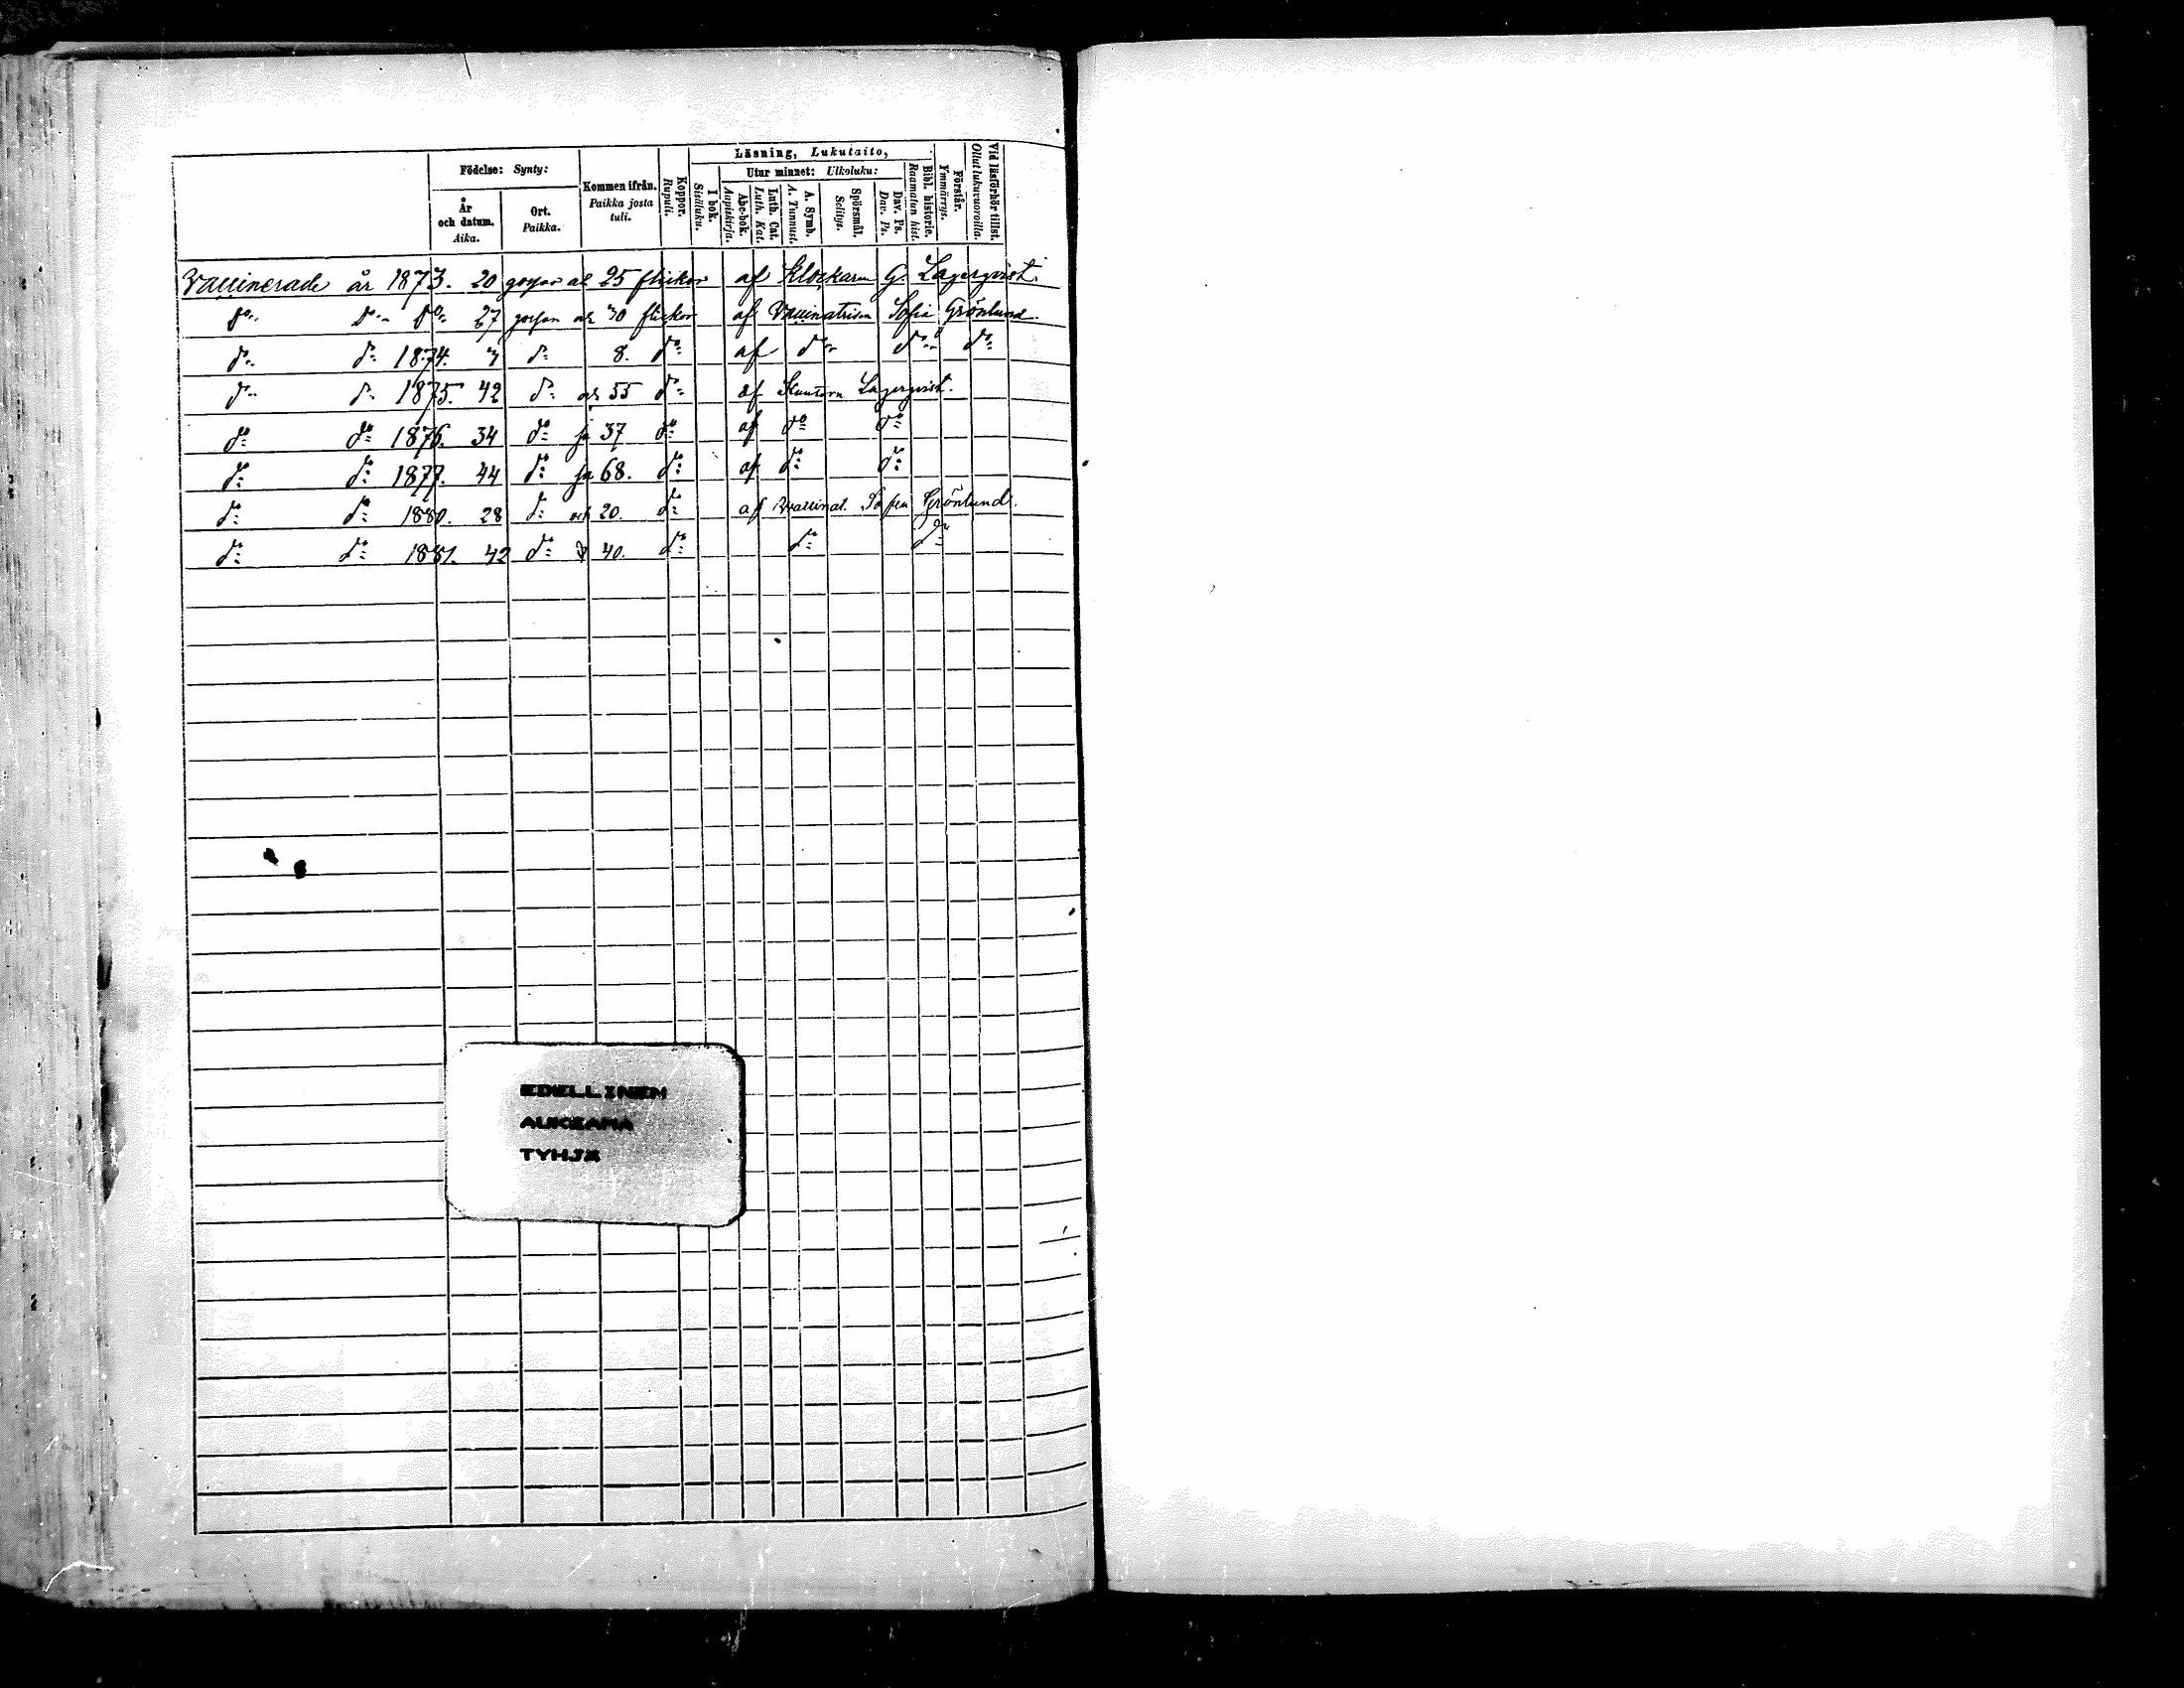 Födelse: Synty:
År och datum. Aika.
Ort. Paikka.
Kommen ifrån. Paikka josta tuli.
Koppor. Rupuli.
Läsning, Lukutaito,
I bok. Sisäluku.
Utur minnet: Ulkoluku:
Abc-bok. Aapiskirja.
Luth. Cat. Luth. Kat.
A. Symb. A. Tunnust.
Spörsmål. Selitys.
Dav. Ps. Dav. Ps.
Bibl. historie. Raamatun hist.
Förstår. Ymmärrys.
Vid läsförhör tillst. Ollut lukuvuoroilla.
Vaccinerade år 1873. 20 gossar och 25 flickor af Klockaren G. Lagerqvist.
do do do 27 gossar och 30 flickor af Vaccinatrisen Sofia Grönlund.
do do 1874. 7 do 8. do af do do do
do do 1875. 42 do och 55 do af Kantorn Lagerqvist.
do do 1876. 34 do ja 37 do af do do
do do 1877. 44 do ja 68. do af do do
do do 1880. 28 do och 20. do af Vaccinat. Sofia Grönlund.
do do 1881. 42 do 40. do do do
EDELLINEN
AUKEAMA
TYHJÄ